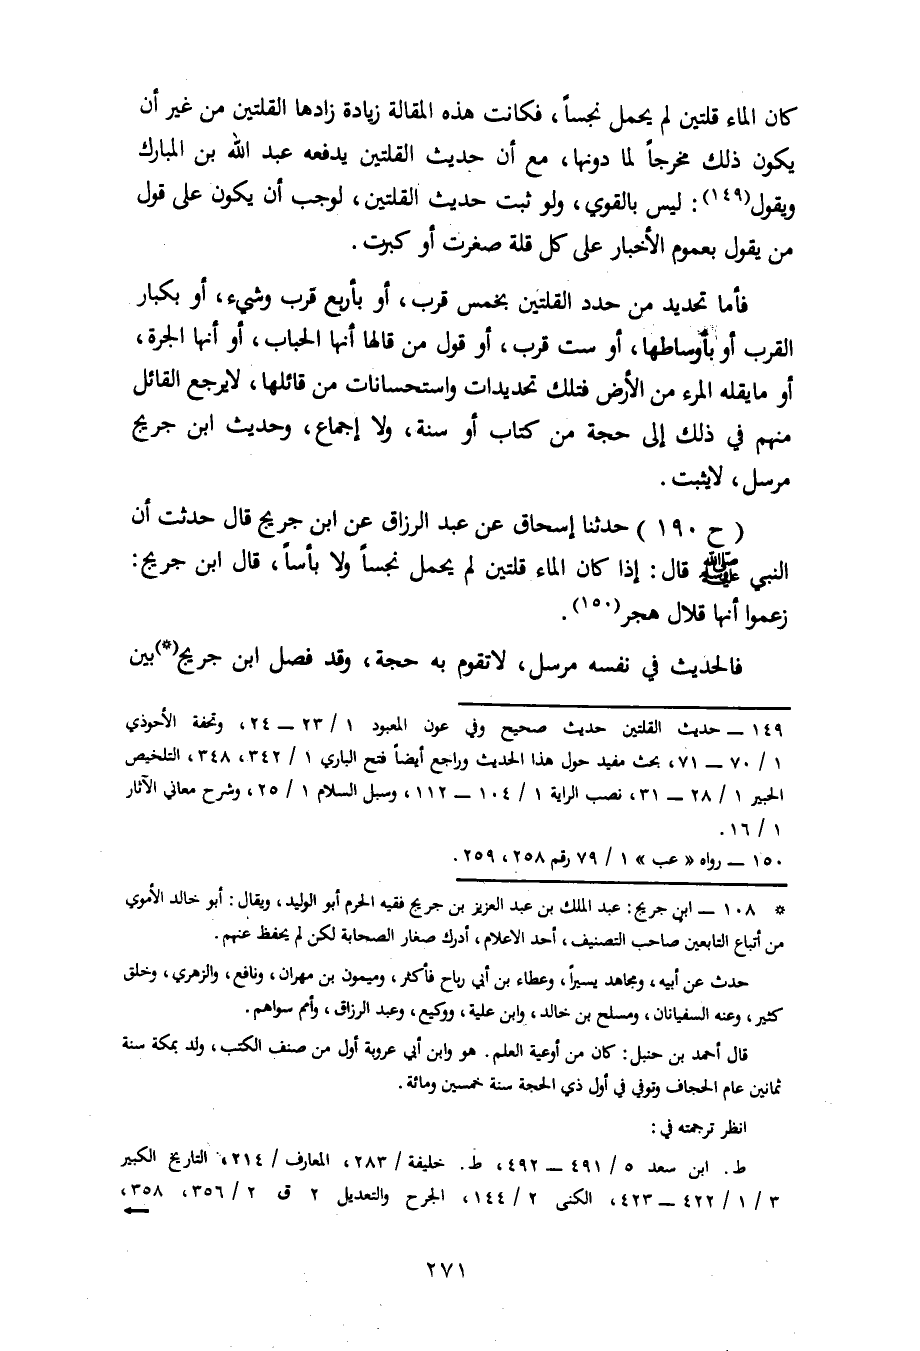 كان الماء قلتين لم يحمل نجساً، فكانت هذه المقالة زيادة زادها القلتين من غير أن
يكون ذلك مخرجاً لما دونها، مع أن حديث القلتين يدفعه عبد الله بن المبارك
ويقول(١٤٩): ليس بالقوي، ولو ثبت حديث القلتين، لوجب أن يكون على قول
من يقول بعموم الأخبار على كل قلة صغرت أو كبرت.
فأما تحديد من حدد القلتين بخمس قرب، أو بأربع قرب وشيء، أو بكبار
القرب أو بأوساطها، أو ست قرب، أو قول من قالها أنها الحباب، أو أنها الجرة،
أو مايقله المرء من الأرض فتلك تحديدات واستحسانات من قائلها، لايرجع القائل
منهم في ذلك إلى حجة من كتاب أو سنة، ولا إجماع، وحديث ابن جريج
مرسل، لايثبت.
( ح ١٩٠ ) حدثنا إسحاق عن عبد الرزاق عن ابن جريج قال حدثت أن
النبي ﷺ قال: إذا كان الماء قلتين لم يحمل نجساً ولا بأساً، قال ابن جريج:
زعموا أنها قلال هجر(١٥٠).
فالحديث في نفسه مرسل، لاتقوم به حجة، وقد فصل ابن جريج(*)بين
١٤٩ ــ حديث القلتين حديث صحيح وفي عون المعبود ١ / ٢٣ ــ ٢٤، وتحفة الأحوذي
١ / ٧٠ ــ ٧١، بحث مفيد حول هذا الحديث وراجع أيضاً فتح الباري ١ / ٣٤٢، ٣٤٨، التلخيص
الحبير ١ / ٢٨ ــ ٣١، نصب الراية ١ / ١٠٤ ــ ١١٢، وسبل السلام ١ / ٢٥، وشرح معاني الآثار
١ / ١٦.
١٥٠ ــ رواه « عب » ١ / ٧٩ رقم ٢٥٨، ٢٥٩.
* ١٠٨ ــ ابن جريج: عبد الملك بن عبد العزيز بن جريج فقيه الحرم أبو الوليد، ويقال: أبو خالد الأموي
من أتباع التابعين صاحب التصنيف، أحد الاعلام، أدرك صغار الصحابة لكن لم يحفظ عنهم.
حدث عن أبيه، ومجاهد يسيراً، وعطاء بن أبي رباح فأكثر، وميمون بن مهران، ونافع، والزهري، وخلق
كثير، وعنه السفيانان، ومسلح بن خالد، وابن علية، ووكيع، وعبد الرزاق، وأمم سواهم.
قال أحمد بن حنبل: كان من أوعية العلم. هو وابن أبي عروبة أول من صنف الكتب، ولد بمكة سنة
ثمانين عام الحجاف وتوفي في أول ذي الحجة سنة خمسين ومائة.
انظر ترجمته في:
ط. ابن سعد ٥ / ٤٩١ ــ ٤٩٢، ط. خليفة / ٢٨٣، المعارف / ٢١٤، التاريخ الكبير
٣ / ١ / ٤٢٢ ــ ٤٢٣، الكنى ٢ / ١٤٤، الجرح والتعديل ٢ ق ٢ / ٣٥٦، ٣٥٨،
٢٧١